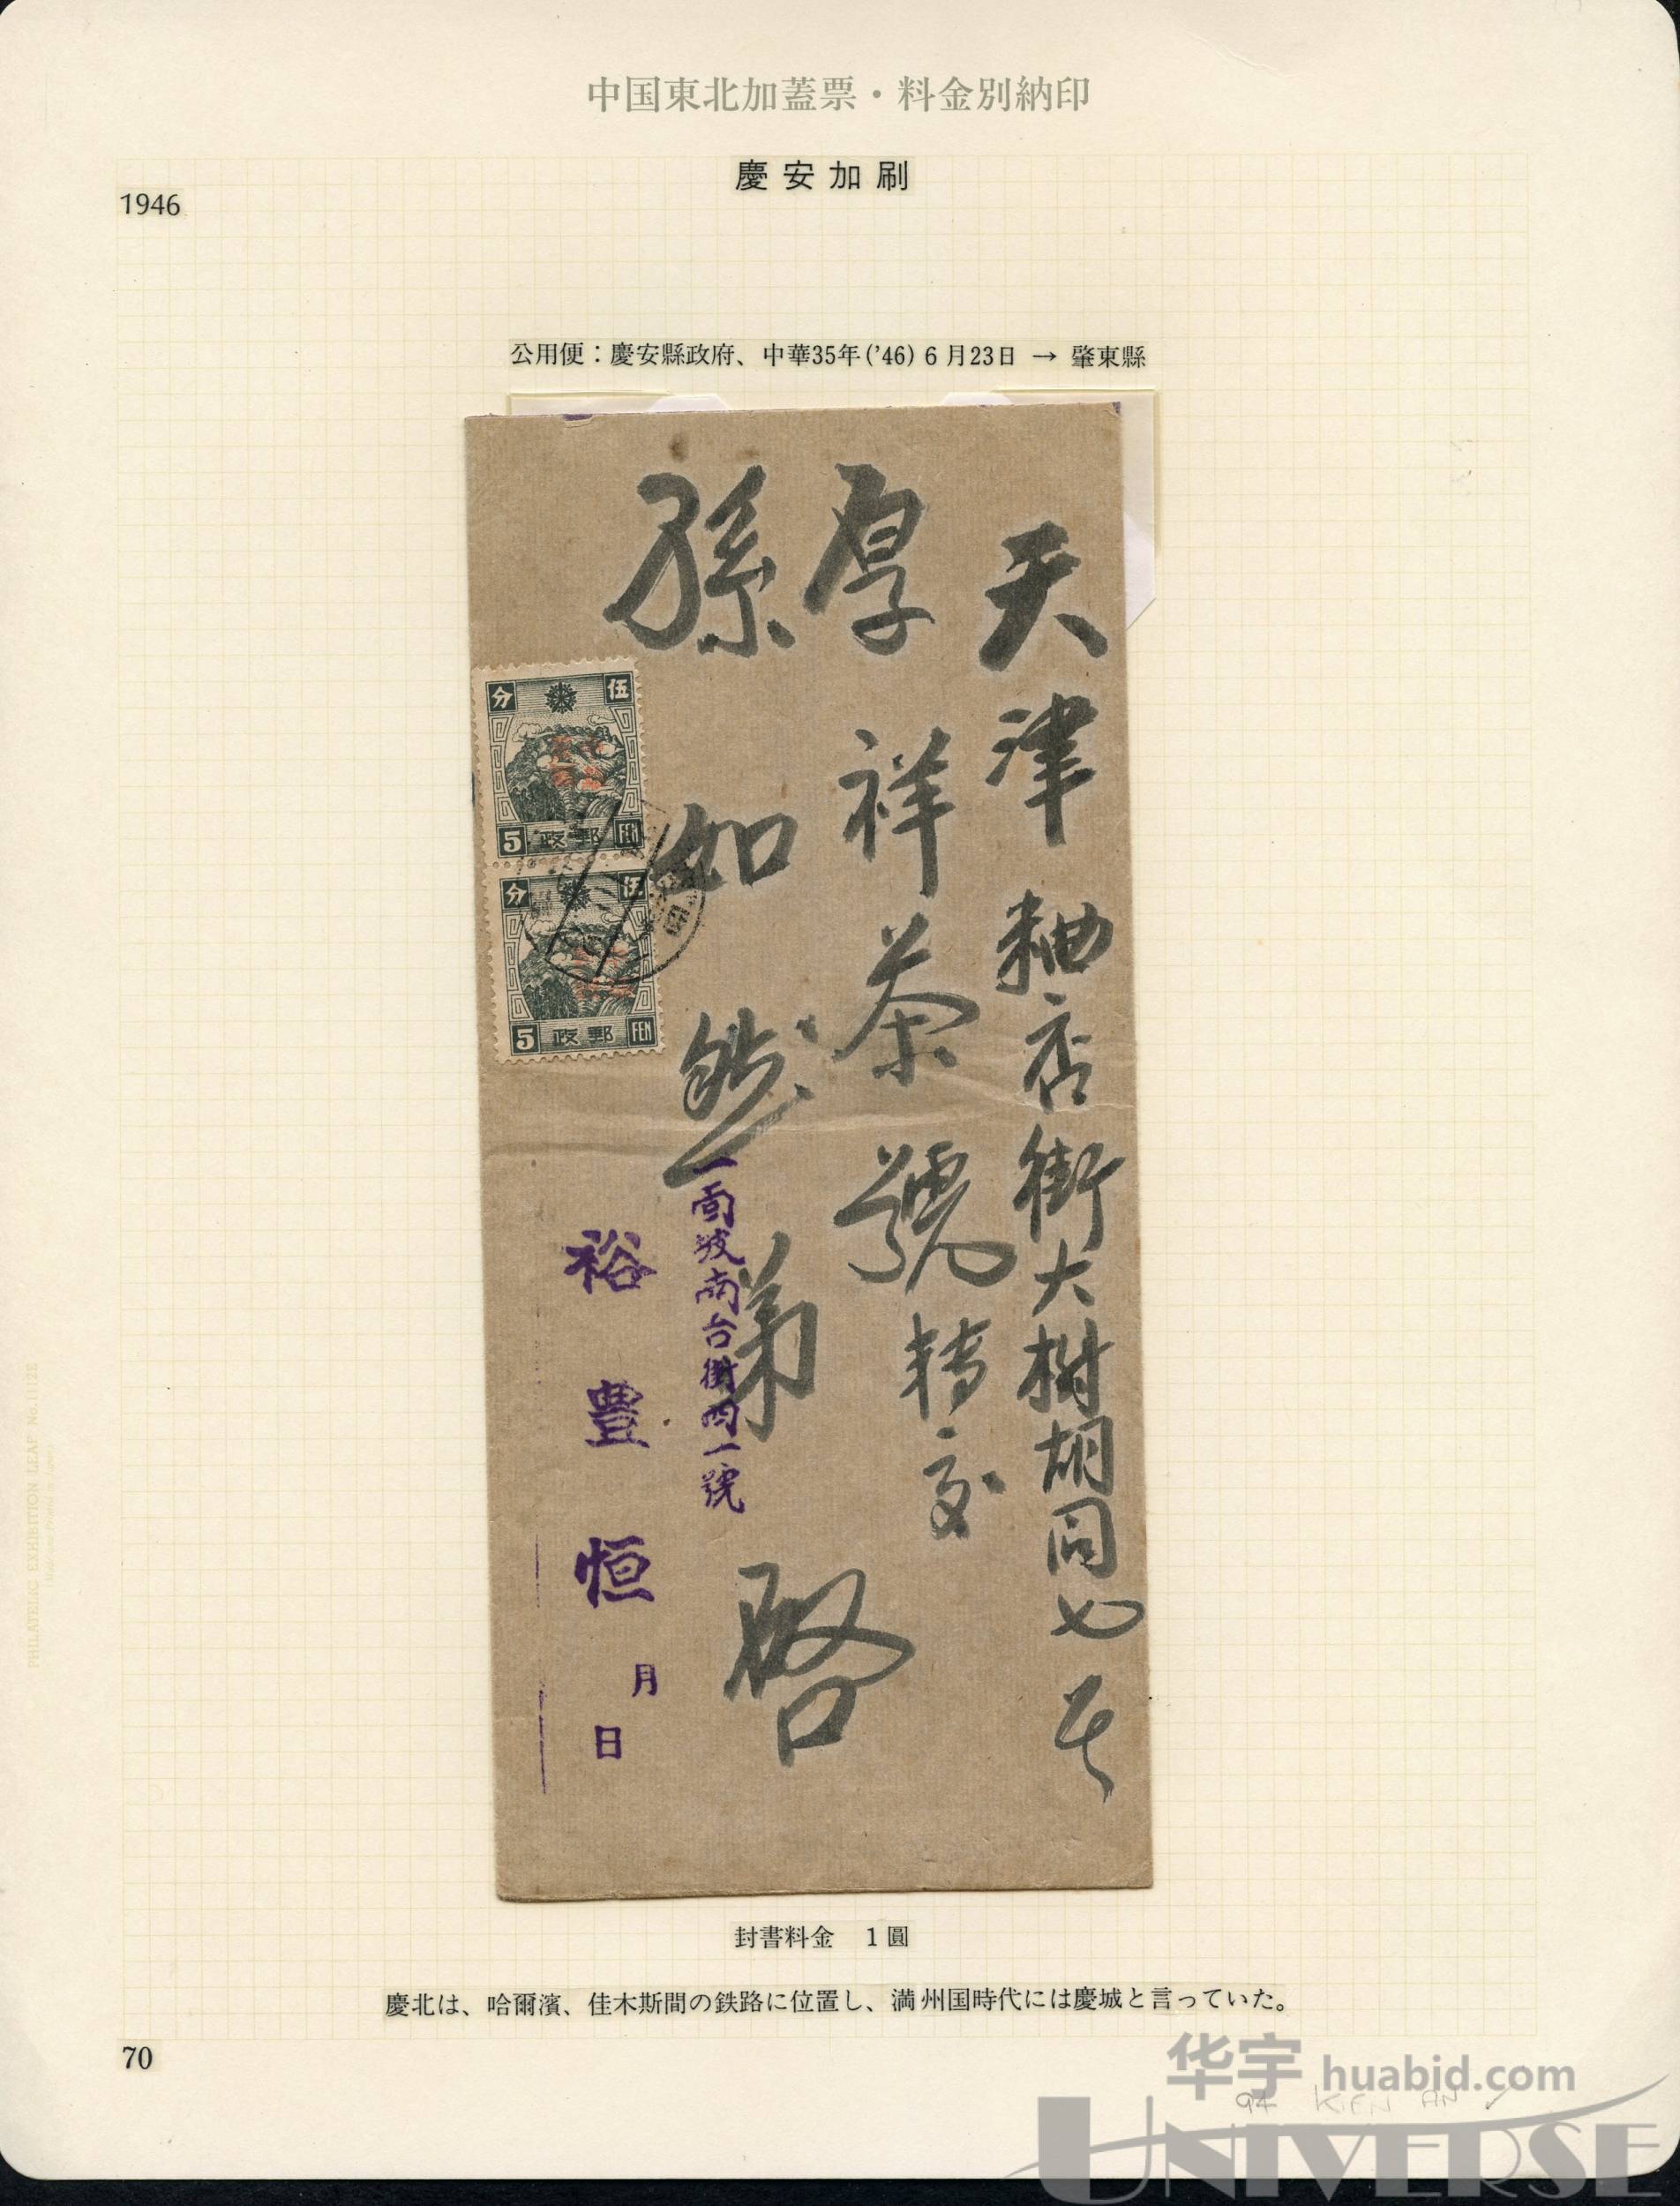 中国東北加蓋票・料金別納印
慶安加刷
1946
公用便：慶安縣政府、中華35年('46)6月23日 → 肇東縣
天津
店街大樹胡同七号
厚祥茶號轉交
孫如然弟啓
伍分
5 政郵 FEN
伍分
5 政郵 FEN
一面坡南台街四一號
裕豊恒
月
日
封書料金 1圓
慶北は、哈爾濱、佳木斯間の鉄路に位置し、満州国時代には慶城と言っていた。
70
PHILATELIC EXHIBITION LEAF No.112E
94 KIEN AN ✓
华宇 huabid.com
UNIVERSE